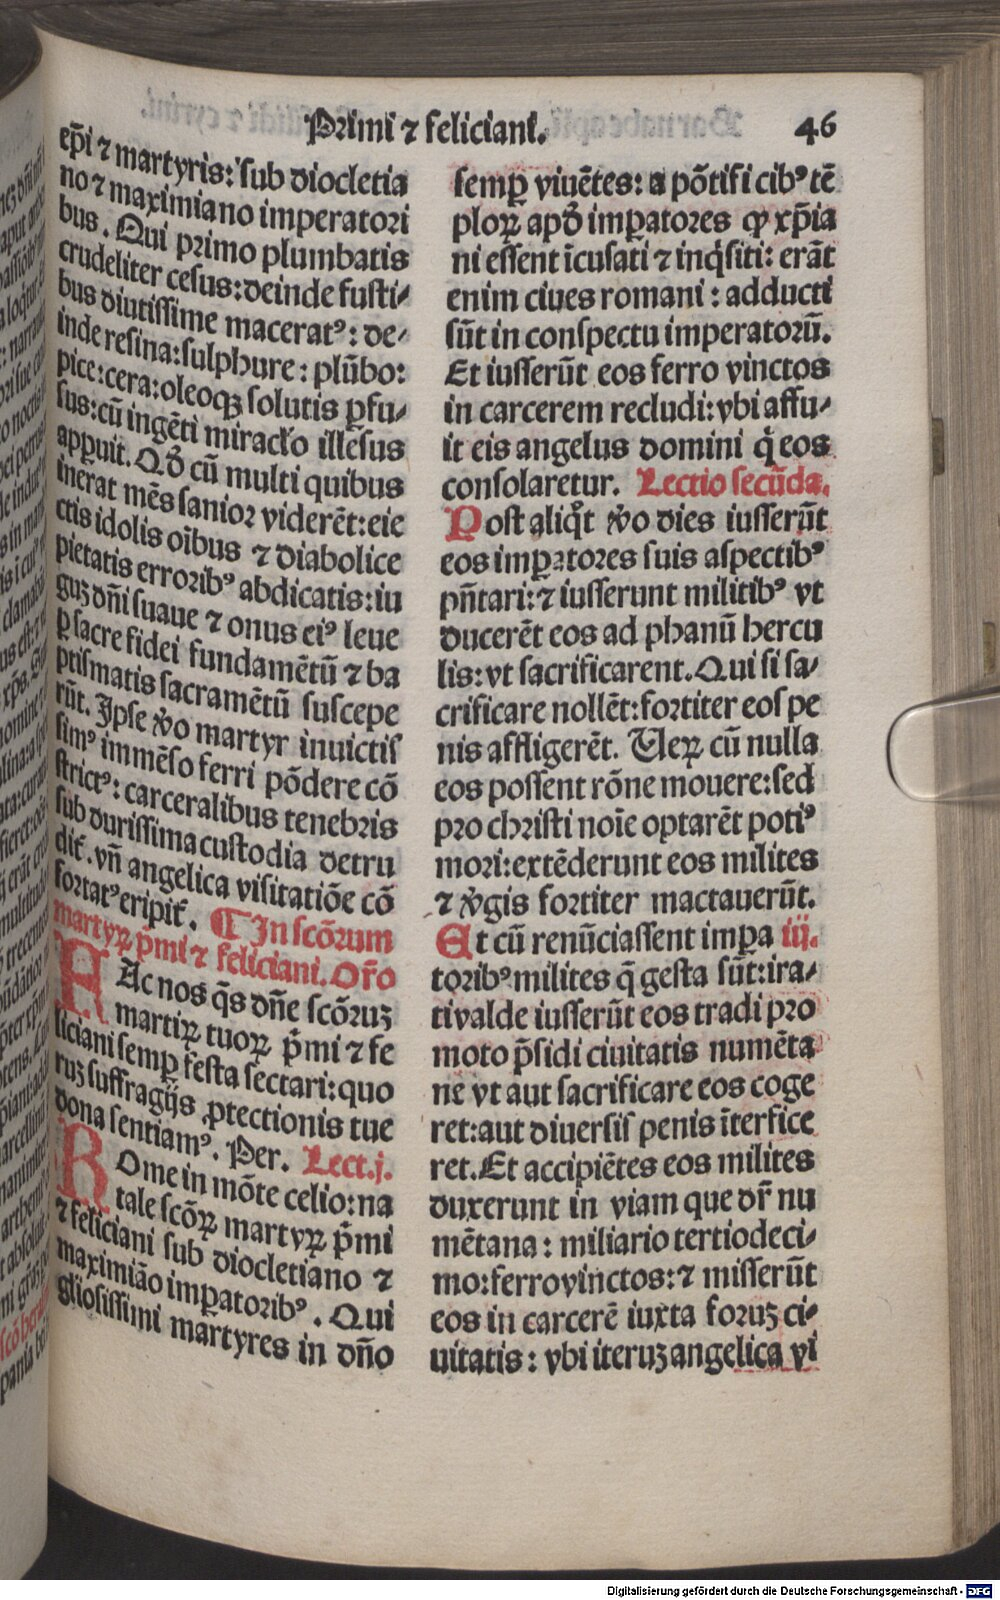 Primi ⁊ feliciani.
46
ep̄i ⁊ martyris: sub diocletia
no ⁊ maximiano imperatori
bus. Qui primo plumbatis
crudeliter cesus: deinde fusti⸗
bus diutissime maceratꝰ: de⸗
inde resina: sulphure: plūbo:
pice: cera: oleoqꝫ solutis ꝑfu⸗
sus: cū ingēti miracl̓o illesus
apparuit. Qd̓ cū multi quibus
inerat mēs sanior viderēt: eie
ctis idolis oībus ⁊ diabolice
pietatis erroribꝰ abdicatis: iu
guꝫ dn̄i suaue ⁊ onus eiꝰ leue
ꝑ sacre fidei fundamētū ⁊ ba
ptismatis sacramētū suscepe
rūt. Ipse v̓o martyr inuictis
simꝰ immēso ferri pōdere cō
strictꝰ: carceralibus tenebris
sub durissima custodia detru
dit̄. vn̄ angelica visitatiōe cō
fortatꝰ eripit̄. ¶ In scōrum
martyꝝ p̄mi ⁊ feliciani. Or̄o
FAc nos q̄s dn̄e scōruꝫ
martiꝝ tuoꝝ p̄mi ⁊ fe
liciani semꝑ festa sectari: quo
ruꝫ suffragijs ꝓtectionis tue
dona sentiamꝰ. Per. Lect. j.
ROme in mōte celio: na
tale scōꝝ martyꝝ p̄mi
⁊ feliciani sub diocletiano ⁊
maximiāo imꝑatoribꝰ. Qui
gl̓iosissimi martyres in dn̄o
semꝑ viuētes: a pōtificibꝰ tē
ploꝝ apd̓ imꝑatores ꝙ xp̄ia
ni essent īcusati ⁊ inq̇siti: erāt
enim ciues romani: adducti
sūt in conspectu imperatorū.
Et iusserūt eos ferro vinctos
in carcerem recludi: vbi affu⸗
it eis angelus domini q̇ eos
consolaretur. Lectio secūda.
Post aliq̇t v̓o dies iusserūt
eos imꝑatores suis aspectibꝰ
pn̄tari: ⁊ iusserunt militibꝰ vt
ducerēt eos ad phanū hercu
lis: vt sacrificarent. Qui si sa⸗
crificare nollēt: fortiter eos pe
nis affligerēt. Ueꝝ cū nulla
eos possent rōne mouere: sed
pro christi noīe optarēt potiꝰ
mori: extēderunt eos milites
⁊ v̓gis fortiter mactauerūt.
Et cū renūciassent imꝑa iij.
toribꝰ milites q̄ gesta sūt: ira⸗
ti valde iusserūt eos tradi pro
moto p̄sidi ciuitatis numēta
ne vt aut sacrificare eos coge
ret: aut diuersis penis īterfice
ret. Et accipiētes eos milites
duxerunt in viam que dr̄ nu
mētana: miliario tertiodeci⸗
mo: ferro vinctos: ⁊ misserūt
eos in carcerē iuxta foruꝫ ci⸗
uitatis: vbi iteruꝫ angelica vi
Digitalisierung gefördert durch die Deutsche Forschungsgemeinschaft - DFG